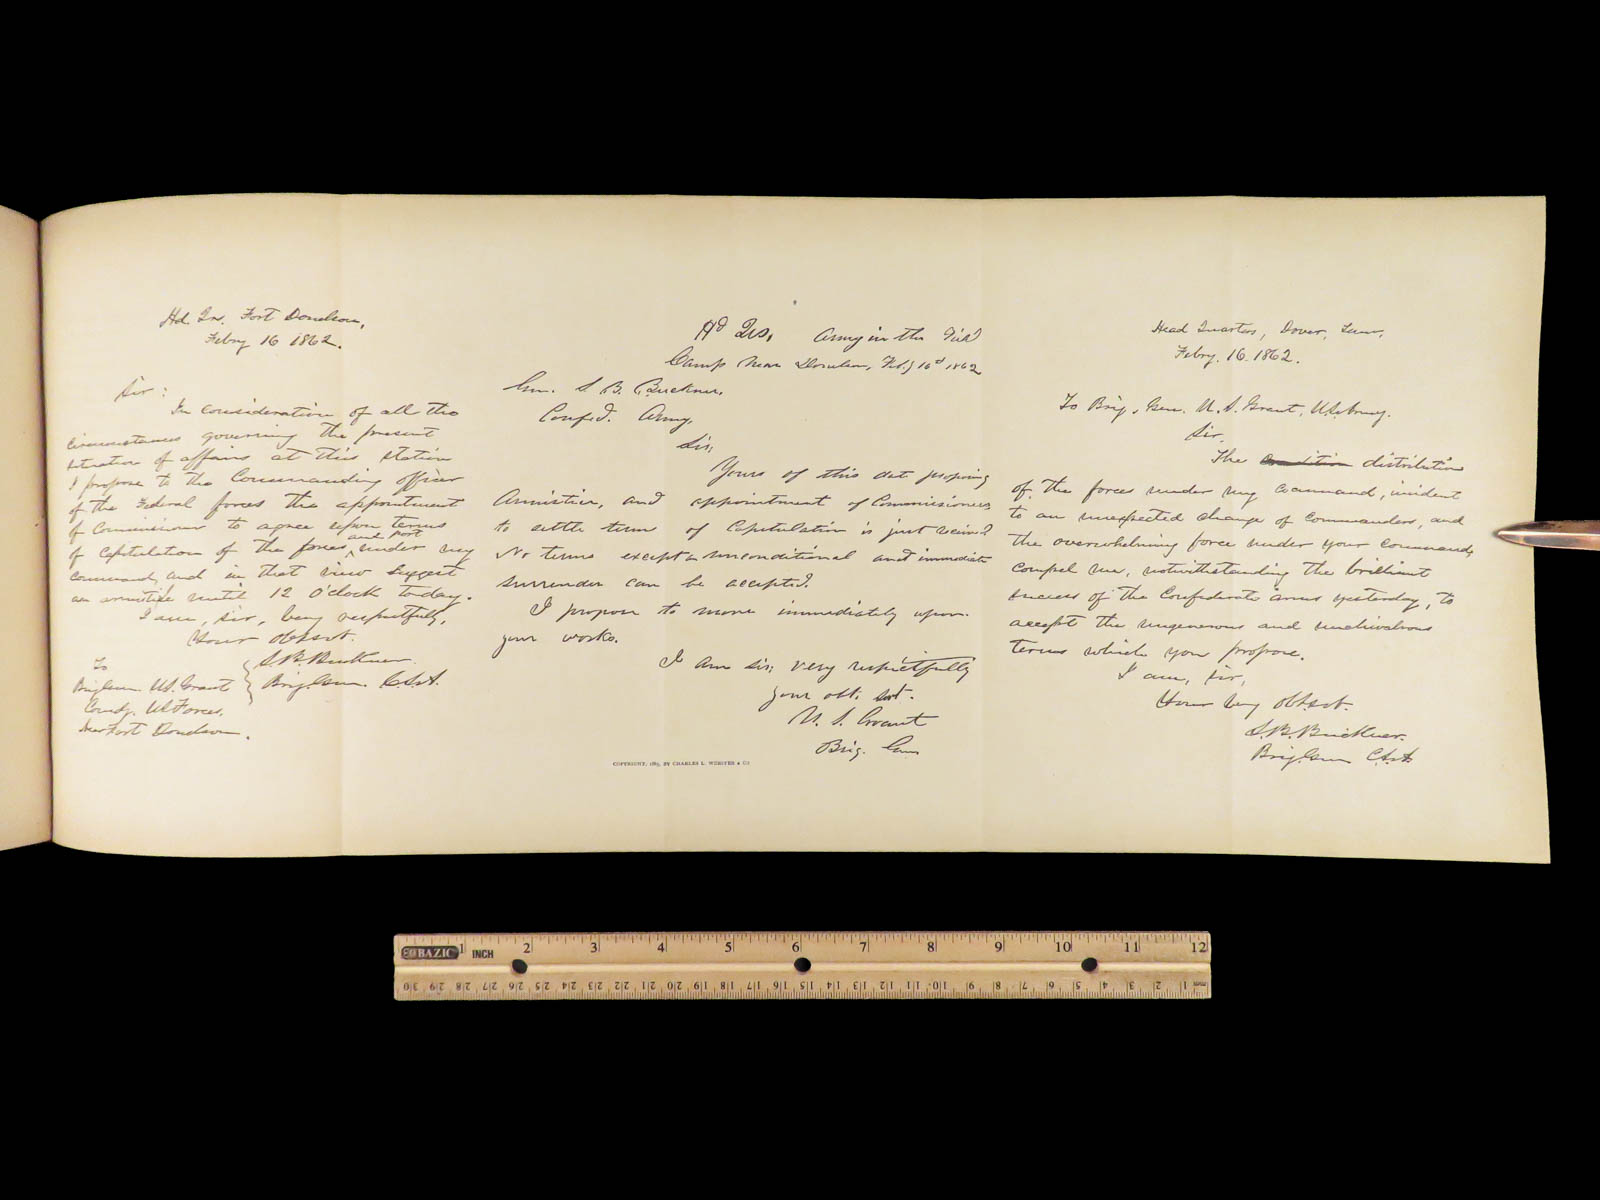 Hd. Qrs. Fort Donelson,
Febry 16 1862.
Sir:
In consideration of all the
circumstances governing the present
situation of affairs at this station
I propose to the Commanding officer
of the Federal forces the appointment
of Commissioners to agree upon terms
of capitulation of the forces and fort under my
command, and in that view suggest
an armistice until 12 O'clock today.
I am, sir, very respectfully,
Your obt. svt.
S.B. Buckner.
Brig. Gen. C.S.A.
To
Brig Gen. U.S. Grant
Comdg. US Forces,
Near Fort Donelson.
Hd Qrs, Army in the Field
Camp Near Donelson, Feby 16th 1862
Gen. S. B. Buckner,
Confed. Army,
Sir;
Yours of this date proposing
Armistice, and appointment of Commissioners,
to settle terms of Capitulation is just received
No terms except an unconditional and immediate
surrender can be accepted.
I propose to move immediately upon
your works.
I am sir; very respectfully
your obt. svt.
U. S. Grant
Brig. Gen
COPYRIGHT, 1885, BY CHARLES L. WEBSTER & CO
Head Quarters, Dover, Tenn,
Febry. 16. 1862.
To Brig. Gen. U. S. Grant, U.S. Army.
Sir,
The condition distribution
of the forces under my command, incident
to an unexpected change of commanders, and
the overwhelming force under your command,
compel me, notwithstanding the brilliant
success of the Confederate arms yesterday, to
accept the ungenerous and unchivalrous
terms which you propose.
I am, sir,
Your very obt. svt.
S.B. Buckner.
Brig. Gen C.S.A
BAZIC 1 INCH 2 3 4 5 6 7 8 9 10 11 12
30 29 28 27 26 25 24 23 22 21 20 19 18 17 16 15 14 13 12 11 10 9 8 7 6 5 4 3 2 1 mm